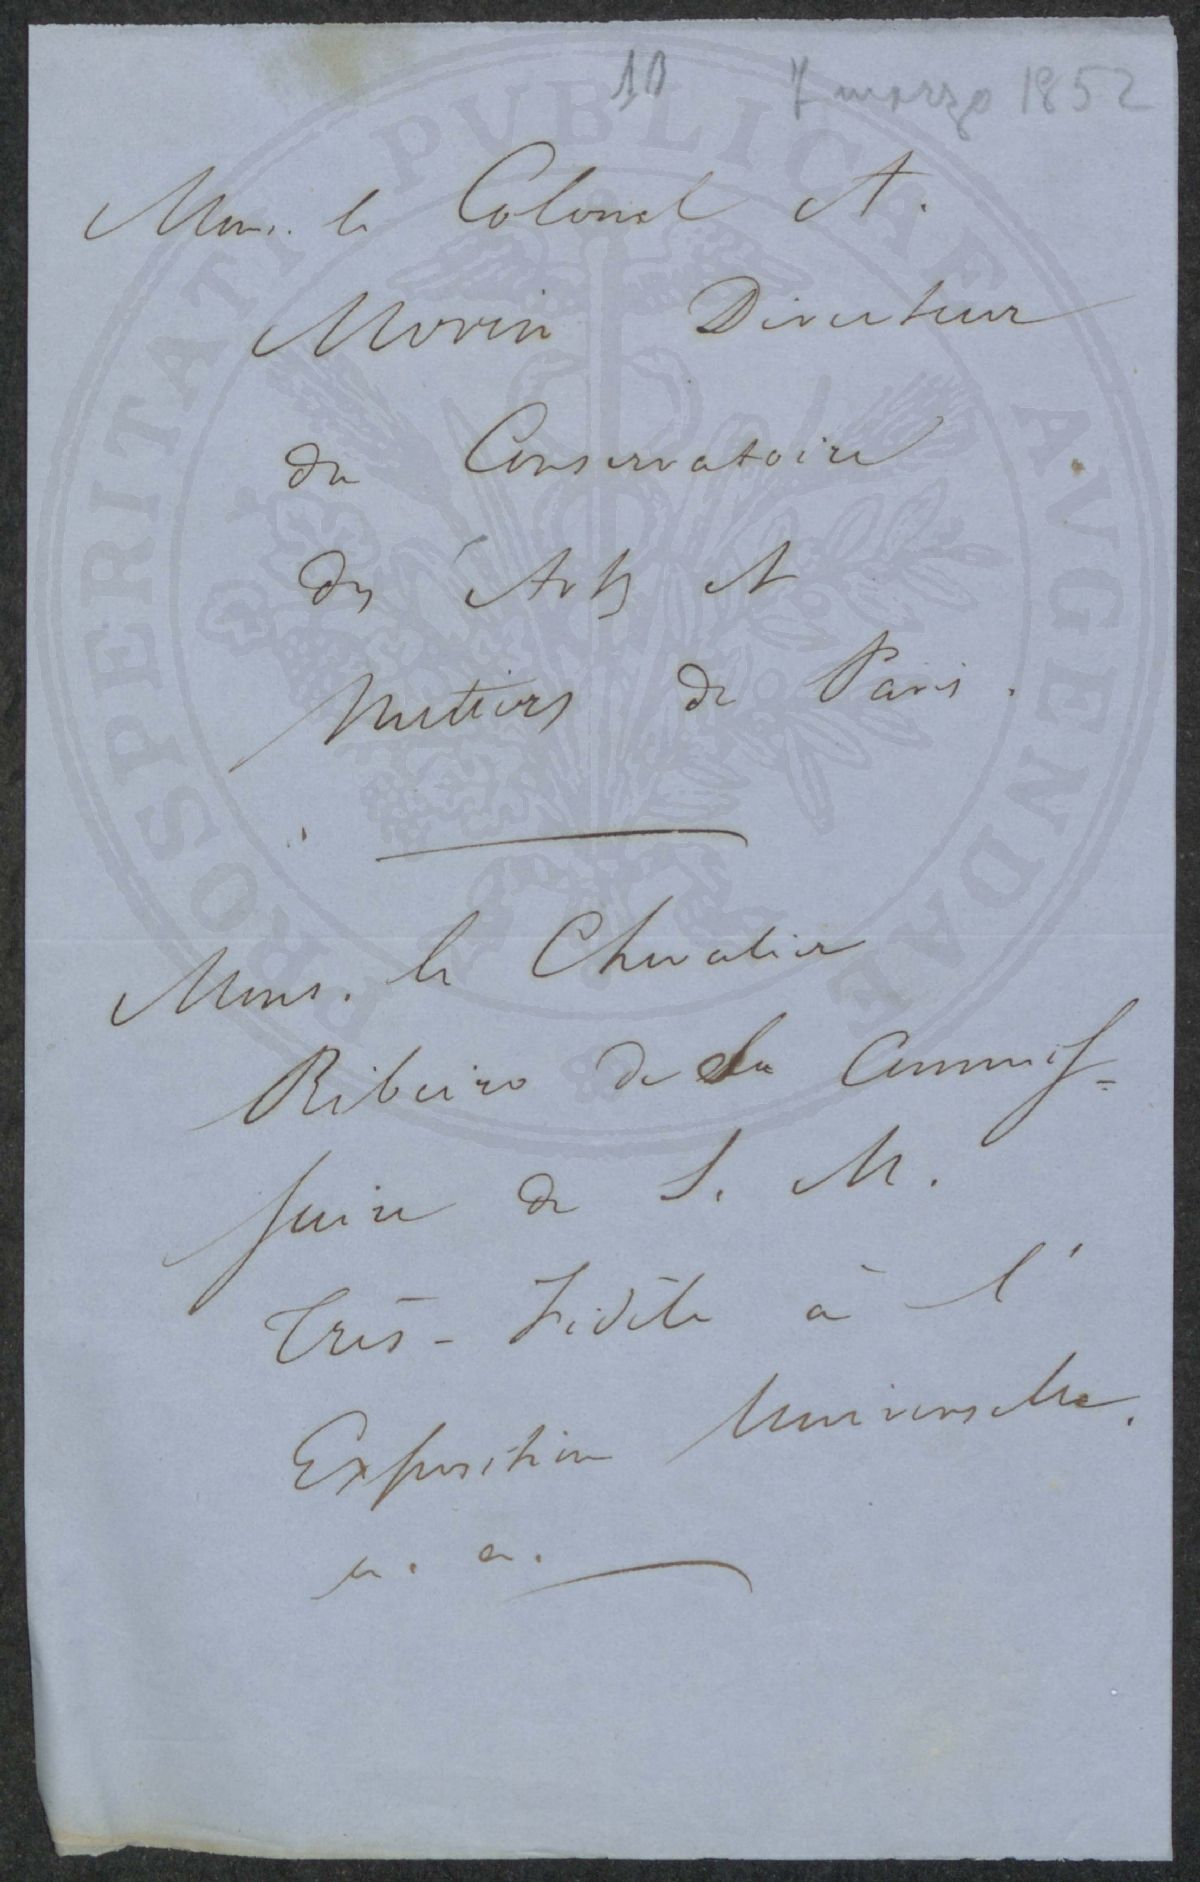 10 7 marzo 1852
Mons. le Colonel A.
Morin Directeur
du Conservatoire
des Arts et
Mettiers de Paris.
Mons. le Chevalier
Ribeiro de la Commis=
saire de S. M.
Très-Fidèle à l'
Exposition Universelle.
PROSPERITATI PUBLICAE AVGENDAE